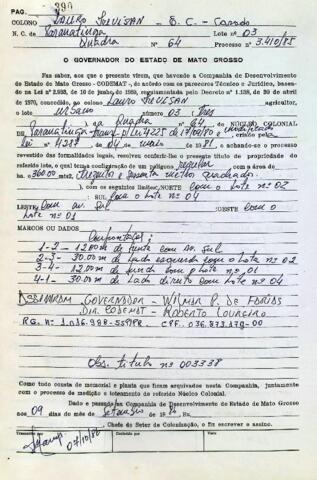 PAG. 390
COLONO Lauro Trevisan - B.C. - Casado
N. C. de Paranatinga Lote nº 03
Quadra Nº 64 Processo nº 3.410/85
O GOVERNADOR DO ESTADO DE MATO GROSSO
Faz saber, aos que a presente virem, que havendo a Companhia de Desenvolvimento
do Estado de Mato Grosso - CODEMAT -, de acordo com os pareceres Técnico e Jurídico, basea-
do Lei nº de 19 de junho de 1969, regulamentada pelo Decreto nº 1.138, de 30 de abril
de 1970, concedido ao colono Lauro Trevisan agricultor,
o lote urbano número 03 três
na Quadra 64 NÚCLEO COLONIAL
Paranatinga p/Lei 4225 de 17/09/80 modificado
lei nº 4287 de 04 de maio 81, e achando-se o processo
revestido das formalidades legais, resolveu conferir-lhe o presente título de propriedade do
referido lote, o qual tem a configuração de um polígono regular com a área de
360.00 metros quadrados.
), com os seguintes limites: NORTE com o Lote nº 02
: SUL com o Lote nº 04
LESTE com av. Sul :OESTE com o
Lote nº 01
MARCOS OU DADOS Confrontações:
1-2- 12.00m de frente com Av. Sul
2-3- 30.00m de Lado esquerdo com o Lote nº 02
3-4- 12.00m de fundo com o Lote nº 01
4-1- 30.00m de Lado direito com Lote nº 04
ASSINARAM GOVERNADOR - WILMAR P. DE FARIAS
DIR. CODEMAT - ROBERTO LOUREIRO
Obs. título nº 003338
Como tudo consta de memorial e planta que ficam arquivados nesta Companhia, juntamente
com o processo de medição e loteamento do referido Núcleo Colonial.
Dado e passado na Companhia de Desenvolvimento do Estado de Mato Grosso
aos 09 dias do mês de Setembro de 1986
, Chefe do Setor de Colonização, o fiz escrever e assino.
Transcrito por
Conferido por
Visto
07/10/86